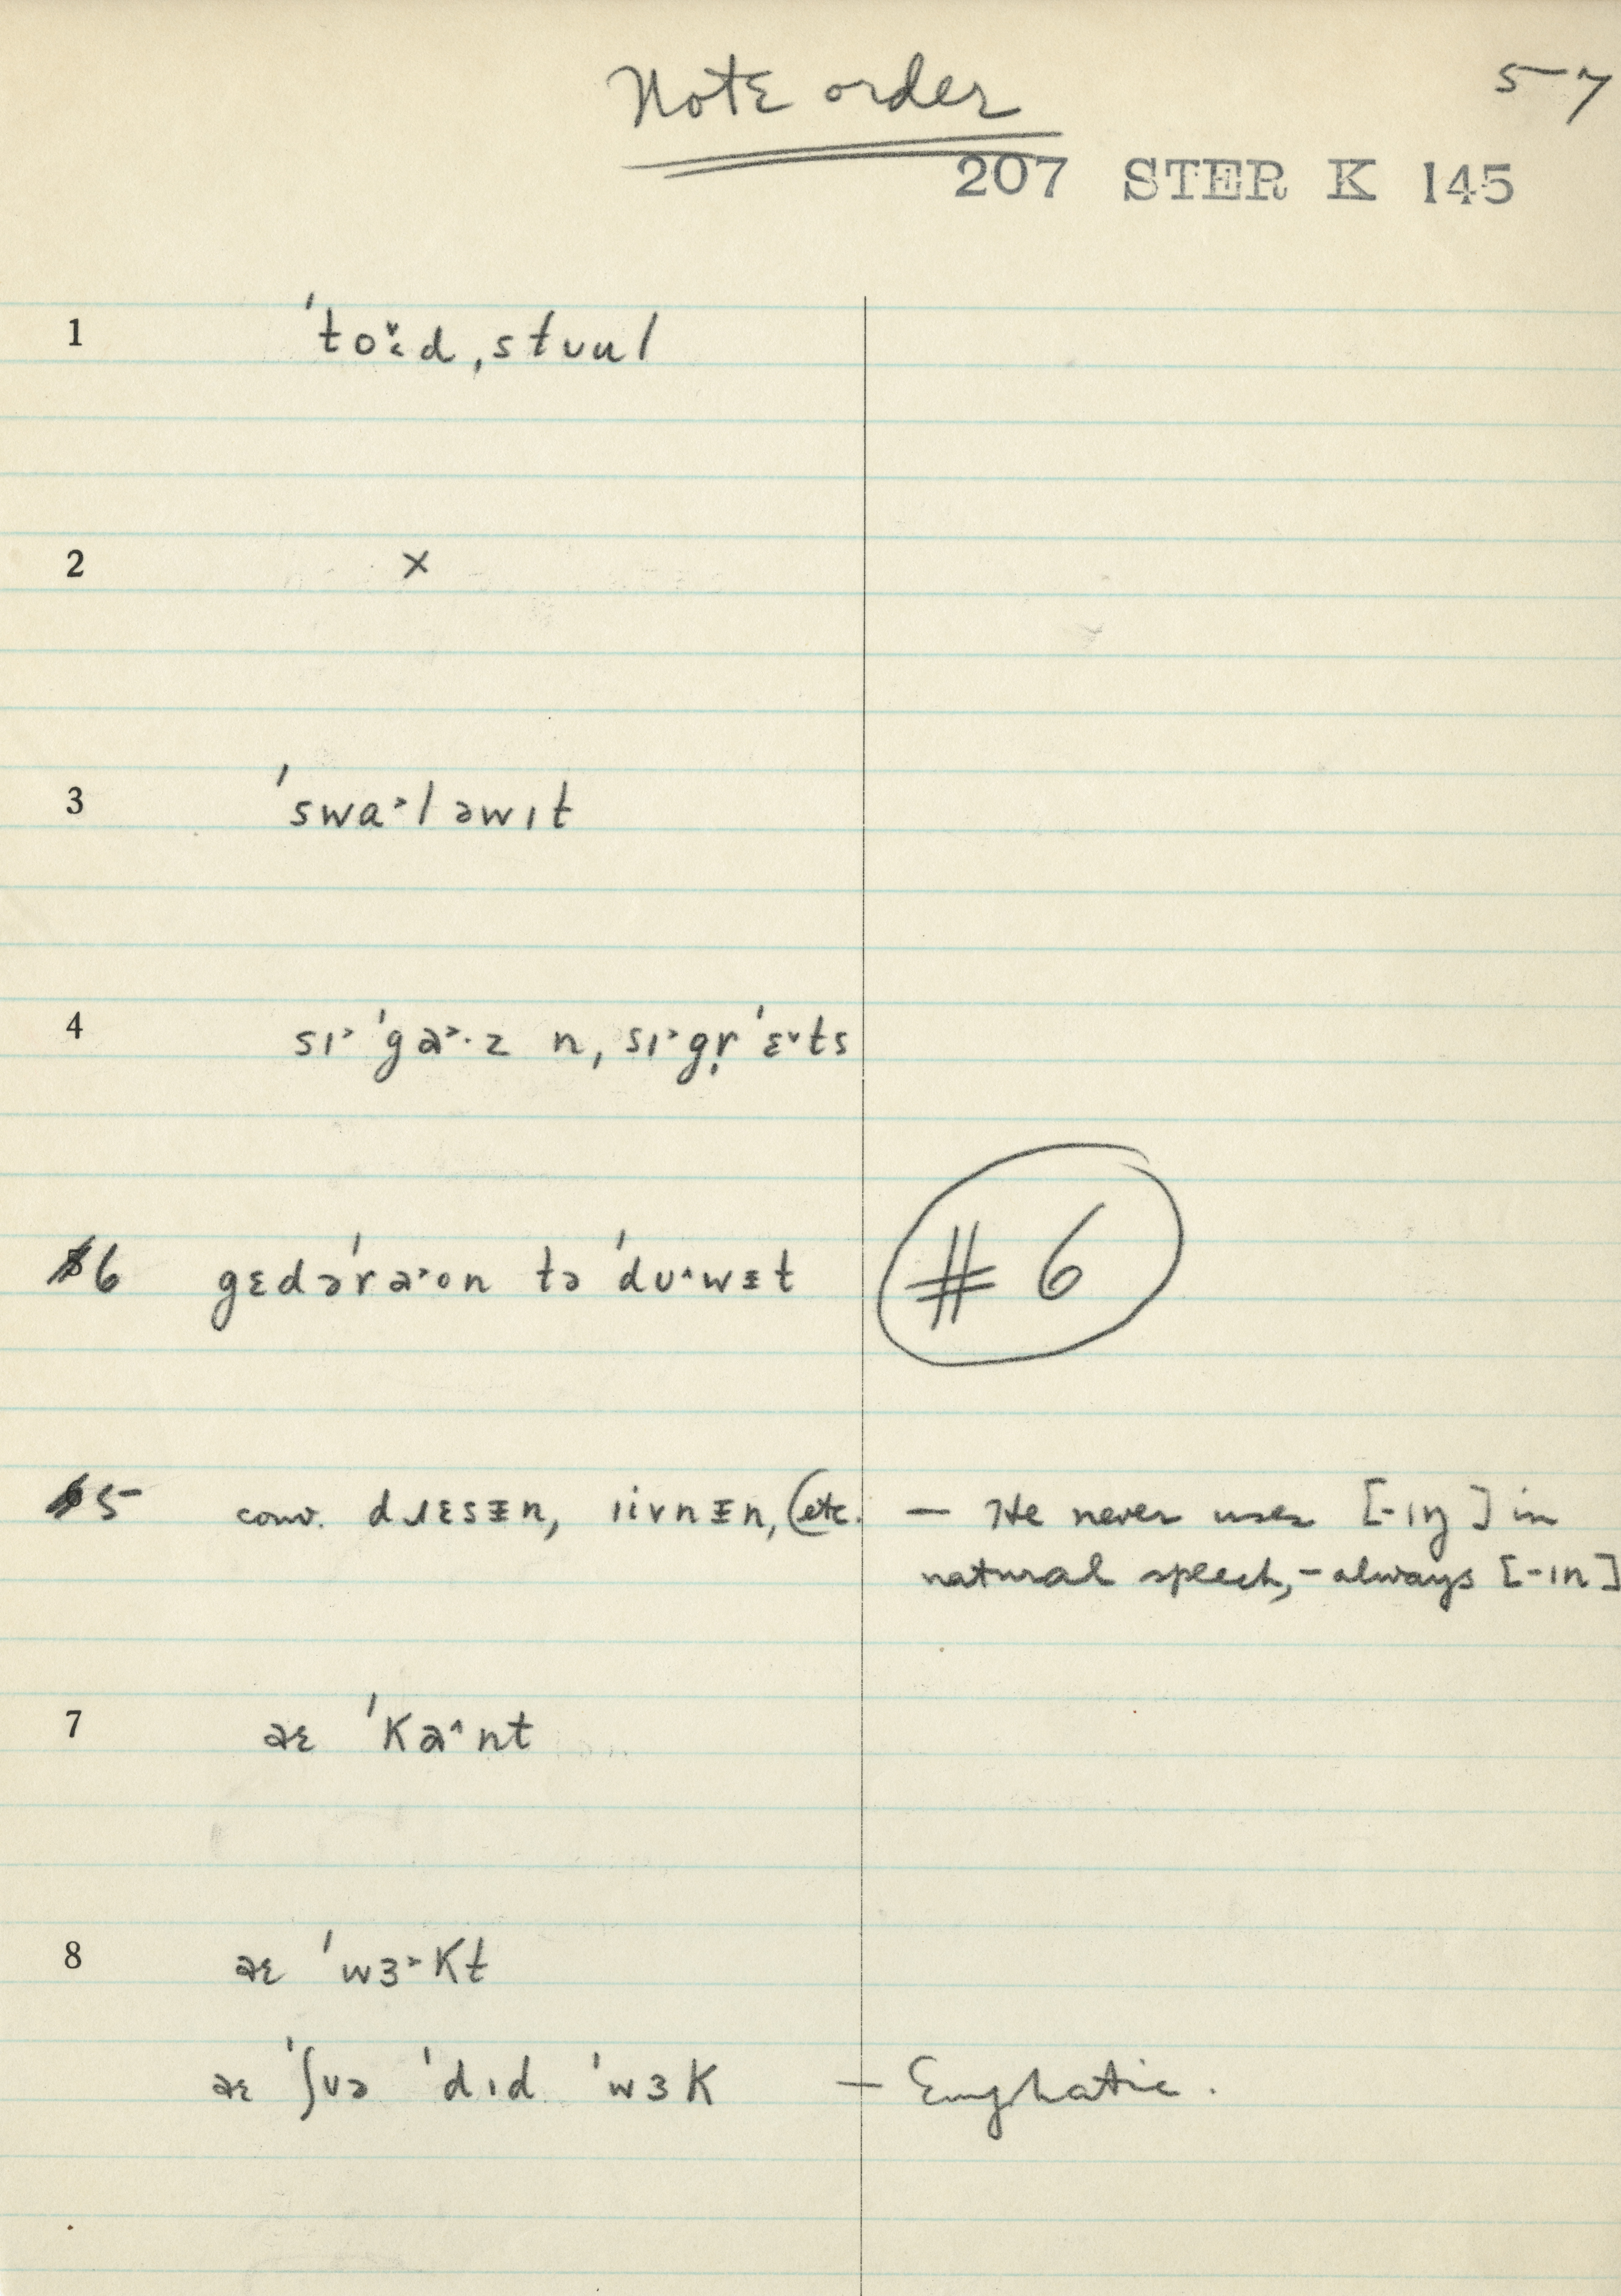 Note order
57
207 STER K 145
1 ˈtoɨ̌d ˌstʊul
2 ×
3 ˈswa˃ləwɪt
4 sɪ˃ˈga˃·z n, sɪ˃gr̩ˈɛ˅ts
6 gɛdəˈra˃on tə ˈdʊ˄wɪt # 6
5 conv. dɹɛsɪn, ɪivnɪn, (etc. — He never uses [-ɪŋ] in
natural speech, – always [-ɪn]
7 aɛ ˈKa˄nt
8 aɛ ˈwɜ˃Kt
aɛ ˈʃʊə ˈdɪd ˈwɜK — Emphatic.